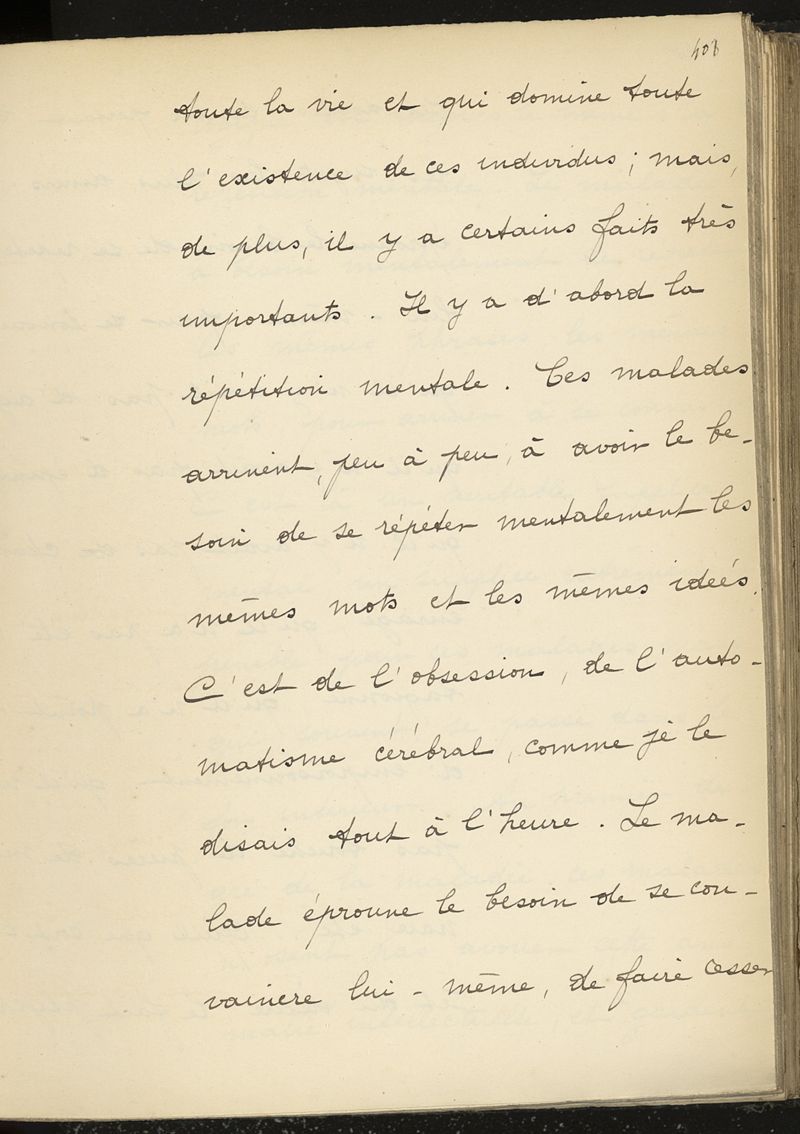 toute la vie et qui domine toute
l'existence de ces individus ; mais,
de plus, il y a certains faits très
importants . Il y a d'abord la
répétition mentale . Ces malades
arrivent, peu à peu, à avoir le be-
soin de se répéter mentalement les
mêmes mots et les mêmes idées.
C'est de l'obsession, de l'auto-
matisme cérébral, comme je le
disais tout à l'heure . Le ma-
lade éprouve le besoin de se con-
vaincre lui-même, de faire cesser